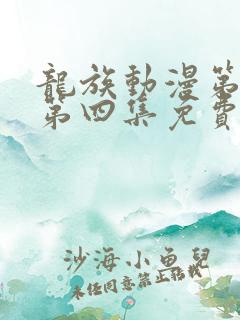 龍族動漫第
第四集免費
沙海小魚兒
未经同意禁止转载